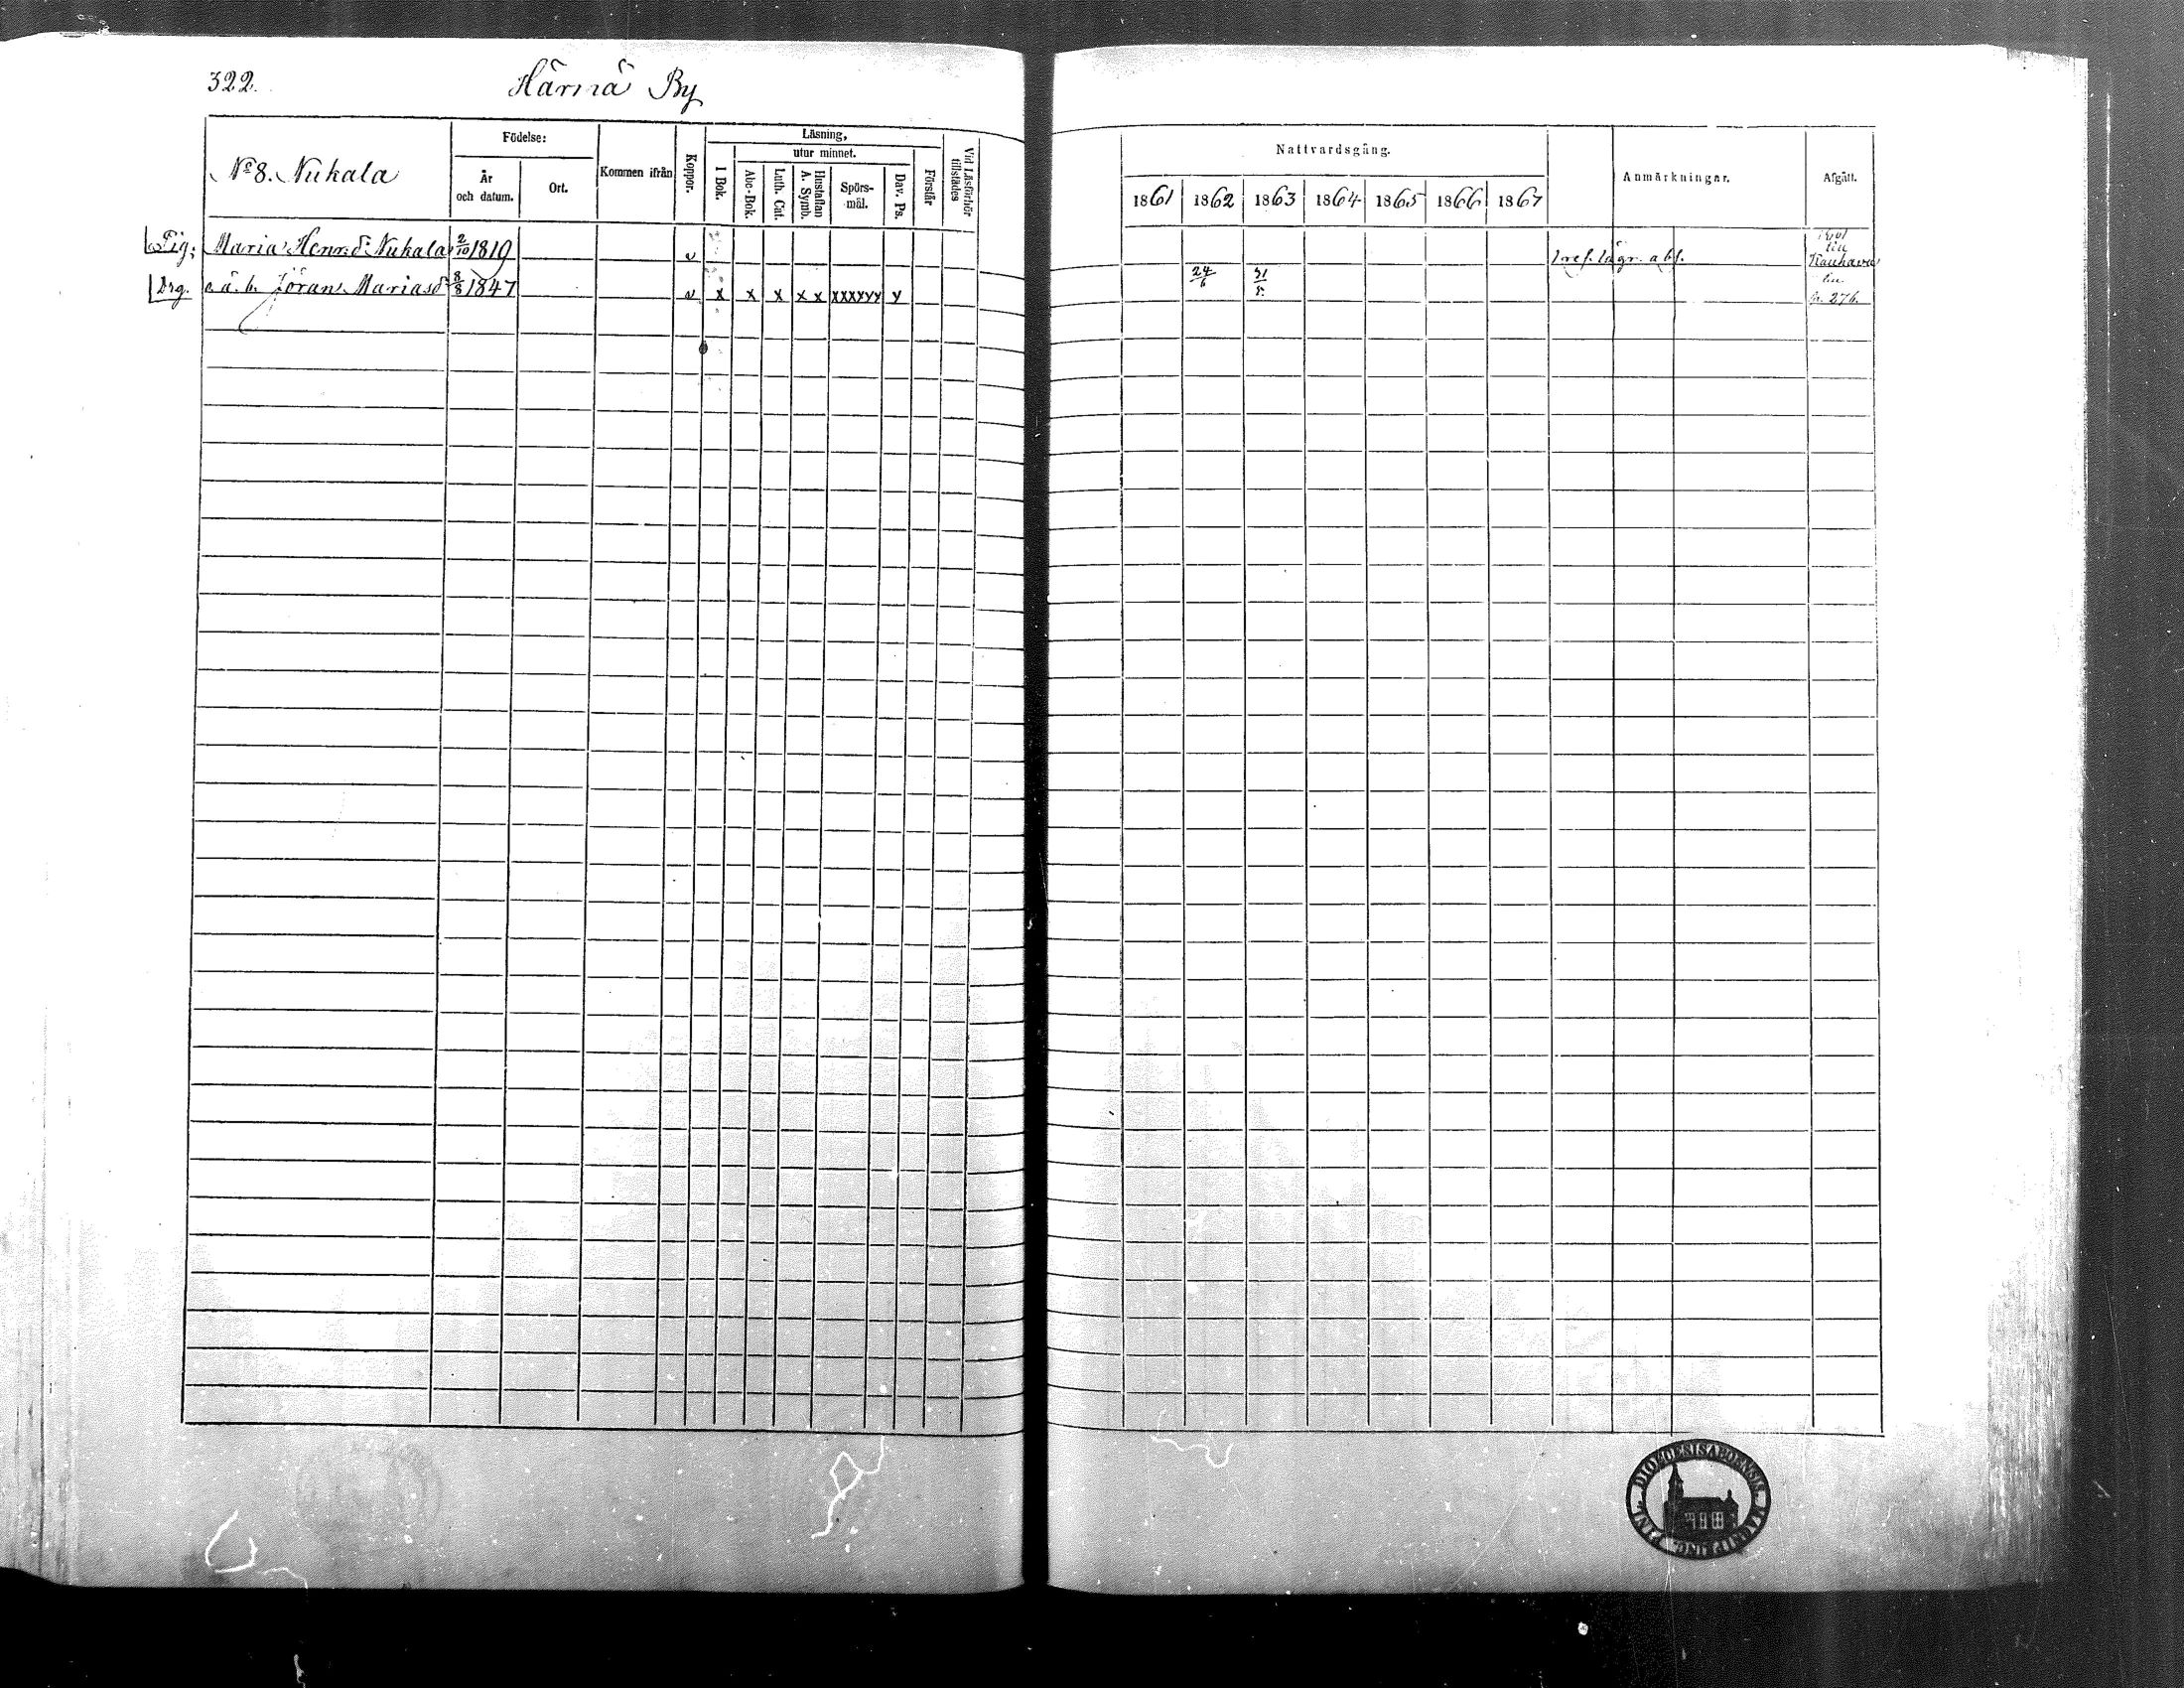 322.
Härmä By
No 8. Nukala
Födelse:
År
och datum.
Ort.
Kommen ifrån
Koppor.
Läsning,
utur minnet.
I Bok.
Abc-Bok.
Luth. Cat.
Hustaflan
A. Symb.
Spörs-
mål.
Dav. Ps.
Förstår
Vid Läsförhör
tillstädes
Nattvardsgång.
1861 1862 1863 1864 1865 1866 1867
Anmärkningar.
Afgått.
Pig. Maria Henr:d: Nukala 2/10 1819 v
till
Kauhava
Drg. o.ä.b. Jöran Mariasd 8/8 1847 v x x x x x xxxyyy y 24/6 31/5
till
p. 276.